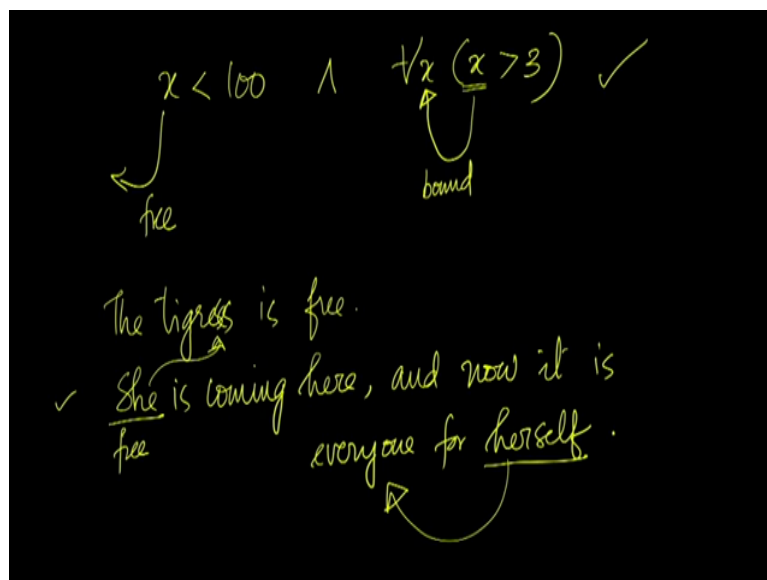 x < 100 ∧ ∀x (x > 3) ✓
free
bound
The tigress is free.
✓ She is coming here, and now it is
free
everyone for herself.